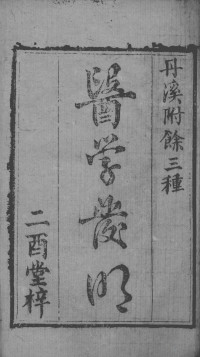 丹溪附餘三種
醫学發明
二酉堂梓